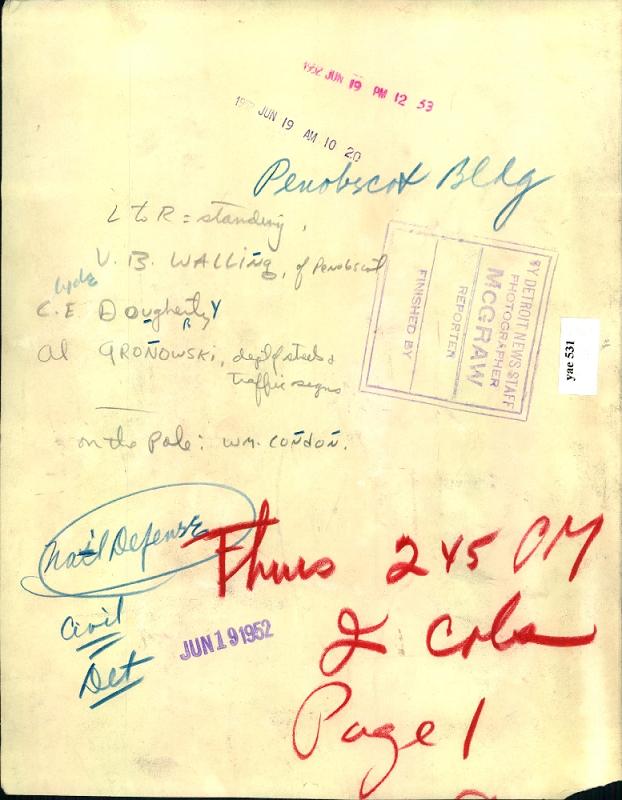 1952 JUN 19 PM 12 53
JUN 19 AM 10 20
Penobscot Bldg
L to R = standing,
V. B. WALLING, of Penobscot
Clyde
C. E Dougherty
Al GRONOWSKI, dept of streets &
traffic signs
on the Pole: WM. CONDON.
BY DETROIT NEWS STAFF
PHOTOGRAPHER
MCGRAW
REPORTER
FINISHED BY
yae 531
Nat'l Defense
Civil
Det
JUN 19 1952
Thurs 245 PM
2 cols
Page 1